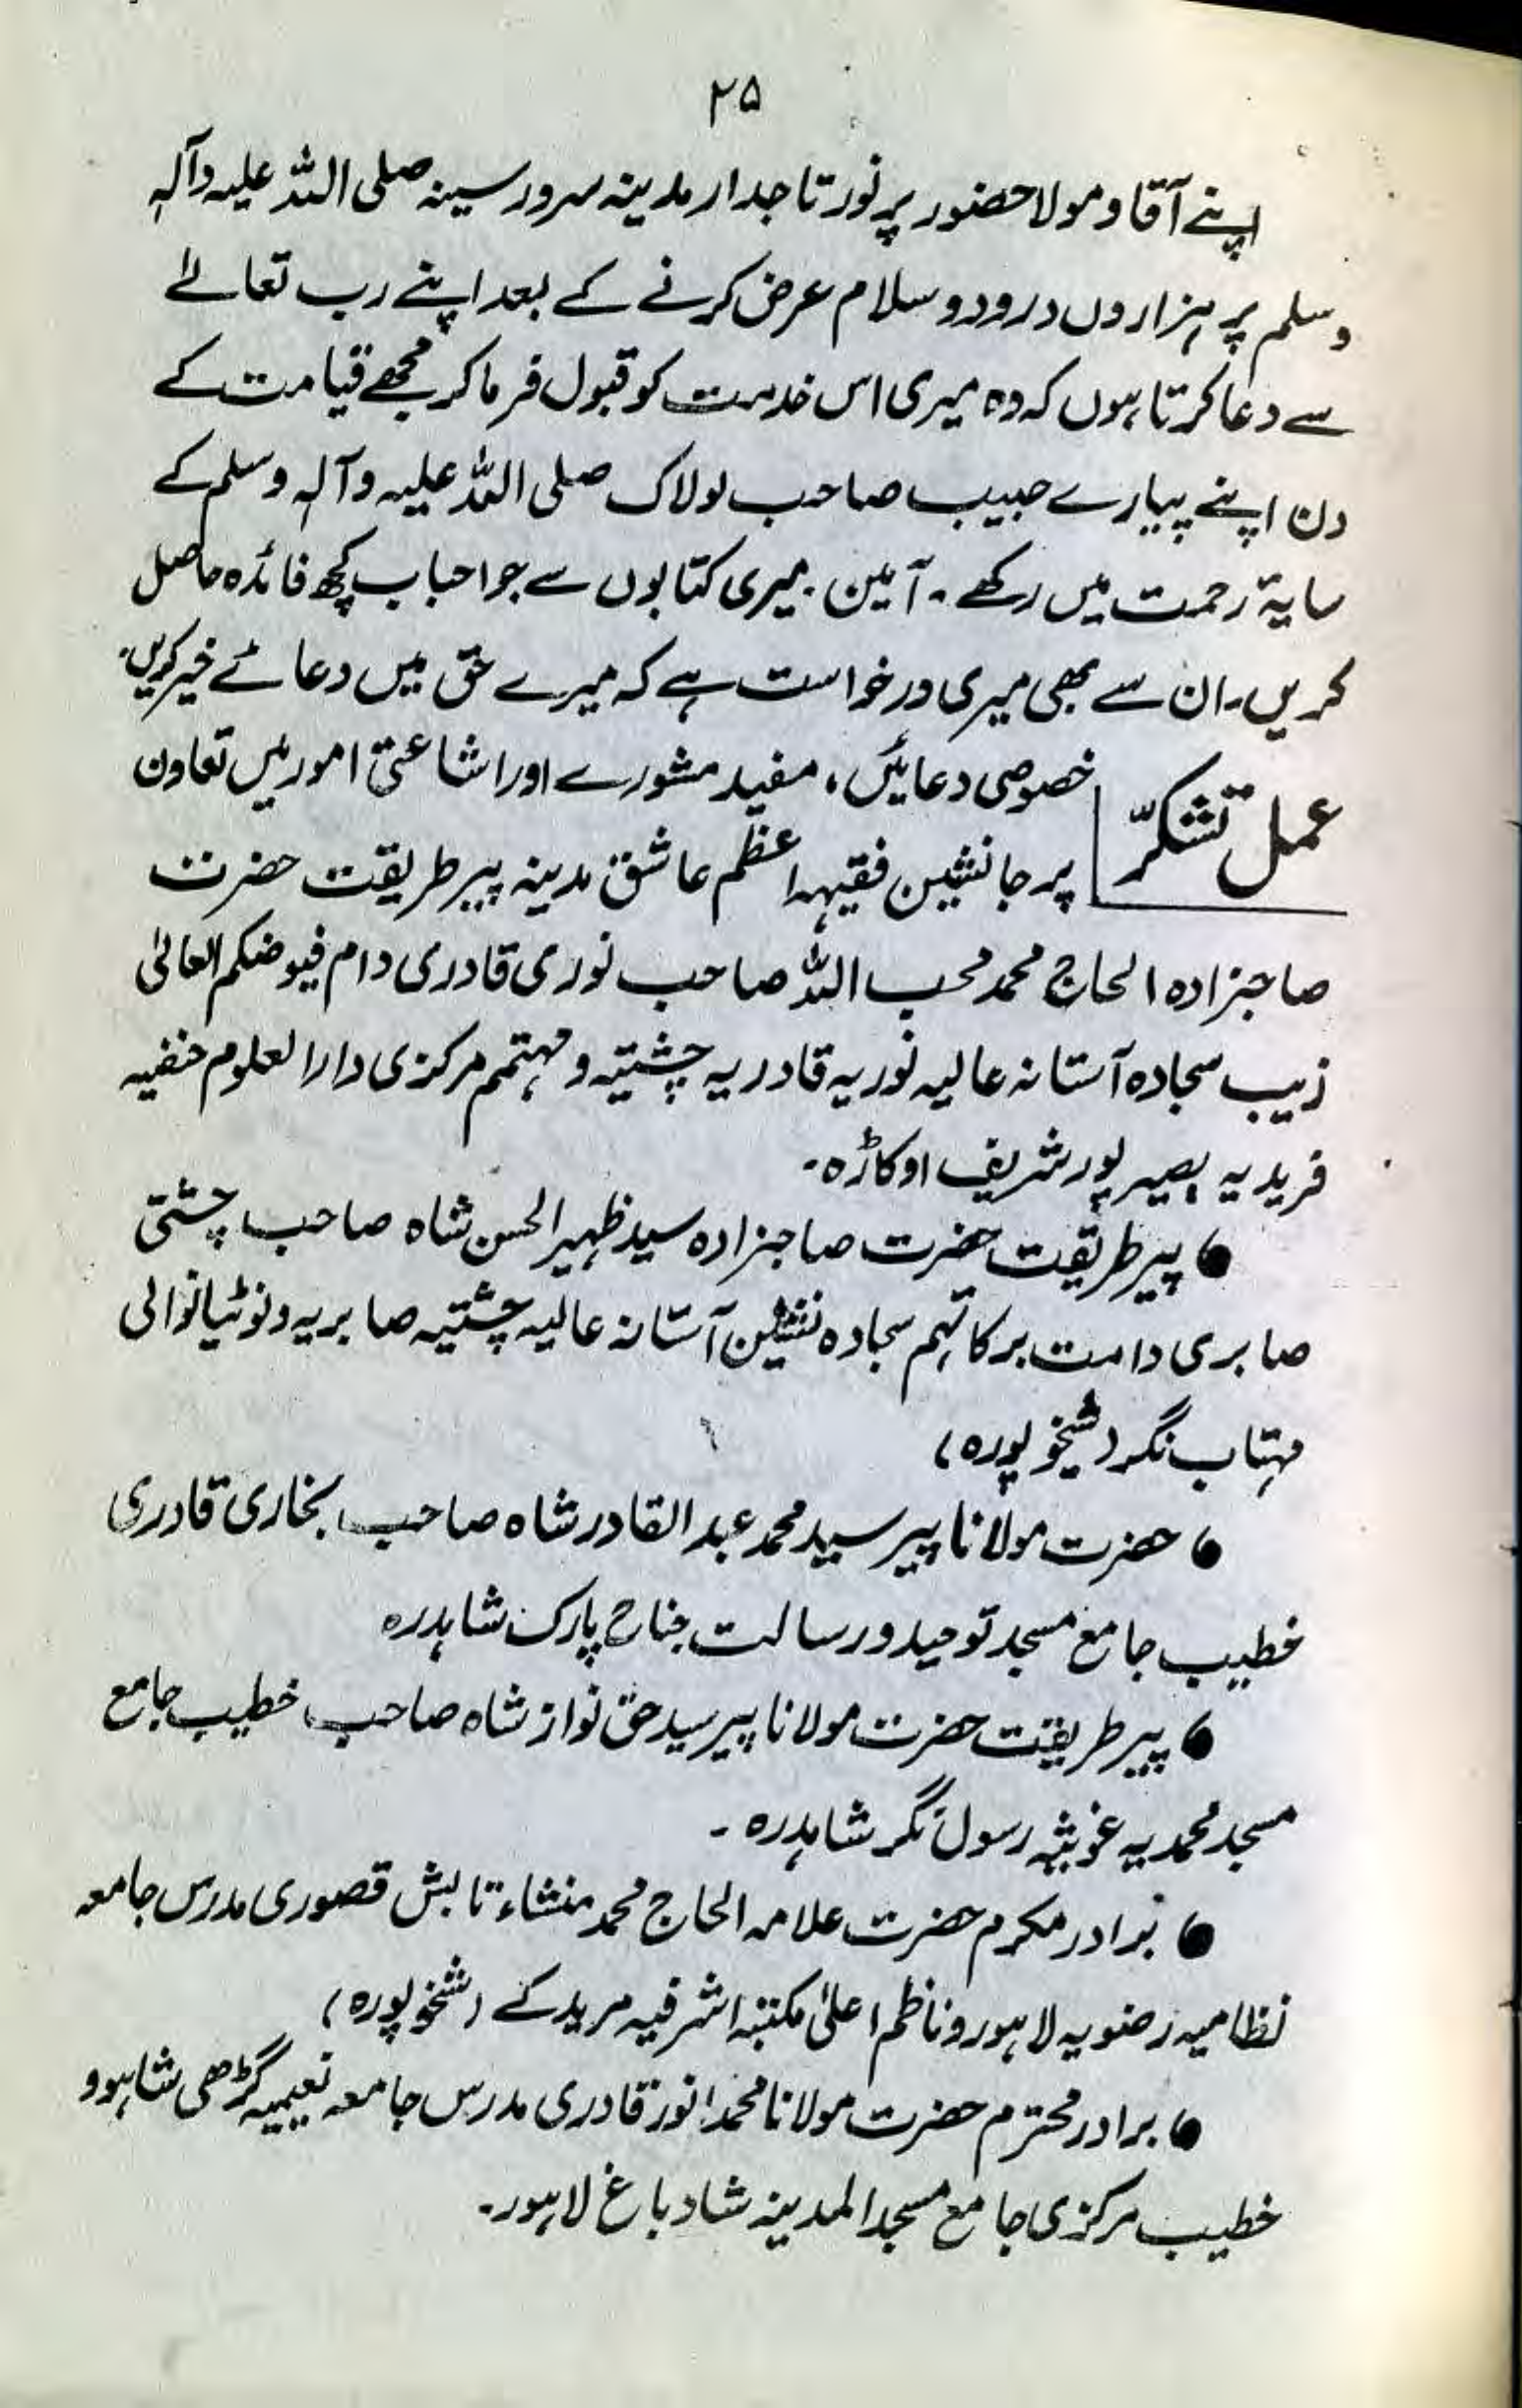 ۲۵
اپنے آقا و مولا حضور پر نور تاجدار مدینہ سرور سینہ صلی اللہ علیہ وآلہٖ
وسلم پر ہزاروں درود و سلام عرض کرنے کے بعد اپنے رب تعالےٰ
سے دعا کرتا ہوں کہ وہ میری اس خدمت کو قبول فرما کر مجھے قیامت کے
دن اپنے پیارے حبیب صاحب لولاک صلی اللہ علیہ وآلہٖ وسلم کے
سایۂ رحمت میں رکھے ۔ آمین ۔ میری کتابوں سے جو احباب کچھ فائدہ حاصل
کریں۔ ان سے بھی میری درخواست ہے کہ میرے حق میں دعائے خیر کریں۔
عمل تشکّر
خصوصی دعائیں، مفید مشورے اور اشاعتی امور میں تعاون
پر جانشین فقیہہ اعظم عاشق مدینہ پیر طریقت حضرت
صاحبزادہ الحاج محمد محب اللہ صاحب نوری قادری دام فیوضکم العالیٰ
زیب سجادہ آستانہ عالیہ نوریہ قادریہ چشتیہ و مہتمم مرکزی دارالعلوم حنفیہ
فریدیہ بصیر پور شریف اوکاڑہ ۔
● پیر طریقت حضرت صاحبزادہ سید ظہیر الحسن شاہ صاحب چشتی
صابری دامت برکاتہم سجادہ نشین آستانہ عالیہ چشتیہ صابریہ ونوٹیانوالی
مہتاب نگر (شیخوپورہ)
● حضرت مولانا پیر سید محمد عبد القادر شاہ صاحب بخاری قادری
خطیب جامع مسجد توحید و رسالت جناح پارک شاہدرہ
● پیر طریقت حضرت مولانا پیر سید حق نواز شاہ صاحب خطیب جامع
مسجد محمدیہ غوثیہ رسول نگر شاہدرہ ۔
● برادر مکرم حضرت علامہ الحاج محمد منشاء تابش قصوری مدرس جامعہ
نظامیہ رضویہ لاہور و ناظم اعلیٰ مکتبہ اشرفیہ مریدکے (شیخوپورہ)
● برادر محترم حضرت مولانا محمد انور قادری مدرس جامعہ نعیمیہ گڑھی شاہو و
خطیب مرکزی جامع مسجد المدینہ شاد باغ لاہور۔